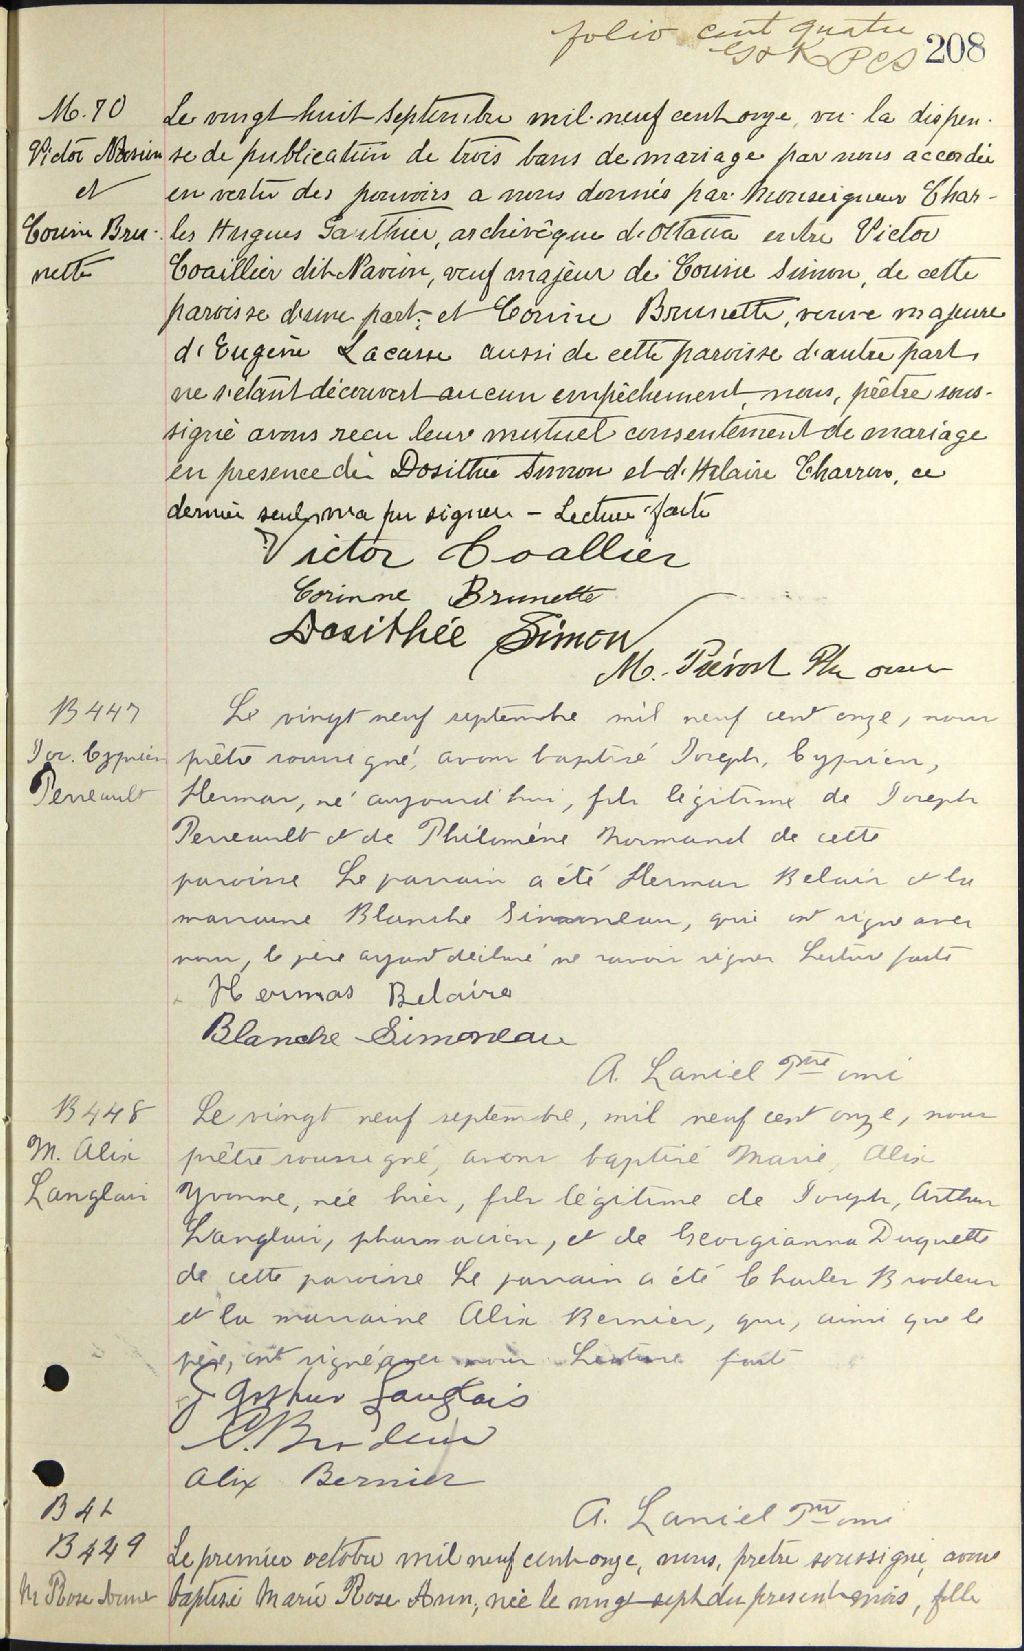 folio cent quatre
208
M. 70
Victor Navion
et
Corine Bru-
nette
Le vingt huit septembre mil neuf cent onze, vu la dispen-
se de publication de trois bans de mariage par nous accordée
en vertu des pouvoirs a nous donnés par Monseigneur Char-
les Hugues Gauthier, archevêque d'Ottawa entre Victor
Coaillier dit Navion, veuf majeur de Corine Simon, de cette
paroisse d'une part; et Corine Brunette, veuve majeure
d'Eugène Lacasse aussi de cette paroisse d'autre part
ne s'étant découvert aucun empêchement, nous, prêtre sous-
signé avons recu leur mutuel consentement de mariage
en presence de Dosithée Simon et d'Hilaire Charron, ce
dernier seul n'a pu signer - Lecture faite
Victor Coallier
Corinne Brunette
Dosithée Simon
M. Prévost Ptre
B 447
Jos. Cyprien
Perreault
Le vingt neuf septembre mil neuf cent onze, nous
prêtre soussigné, avons baptisé Joseph, Cyprien,
Hermas, né aujourd'hui, fils légitime de Joseph
Perreault et de Philomène Normand de cette
paroisse Le parrain a été Hermas Belair et la
marraine Blanche Simoneau, qui ont signé avec
nous, le père ayant déclaré ne savoir signer Lecture faite
Hermas Belaire
Blanche Simoneau
A. Laniel Ptre
B 448
M. Alix
Langlais
Le vingt neuf septembre, mil neuf cent onze, nous
prêtre soussigné, avons baptisé Marie, Alix
Yvonne, née hier, fils légitime de Joseph, Arthur
Langlais, pharmacien, et de Georgianna Duquette
de cette paroisse Le parrain a été Charles Brodeur
et la marraine Alix Bernier, qui, ainsi que le
père, ont signé avec nous Lecture faite
J Arthur Langlais
C. Brodeur
Alix Bernier
A. Laniel Ptre
B 44
B 449
M Rose Anne
Le premier octobre mil neuf cent onze, nous, prêtre soussigné, avons
baptisé Marie Rose Ann, née le vingt sept du present mois, fille